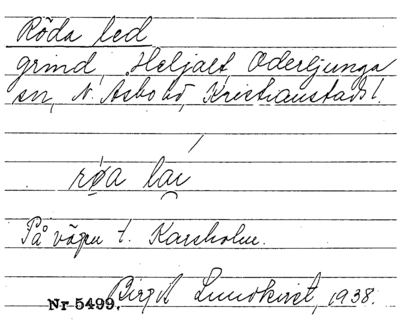 Röda led
grind, Heljalt, Oderljunga
sn, N. Åsbo hd, Kristianstads l.
røa lai
På vägen t. Karsholm.
Birgit Lundkvist, 1938.
Nr 5499.